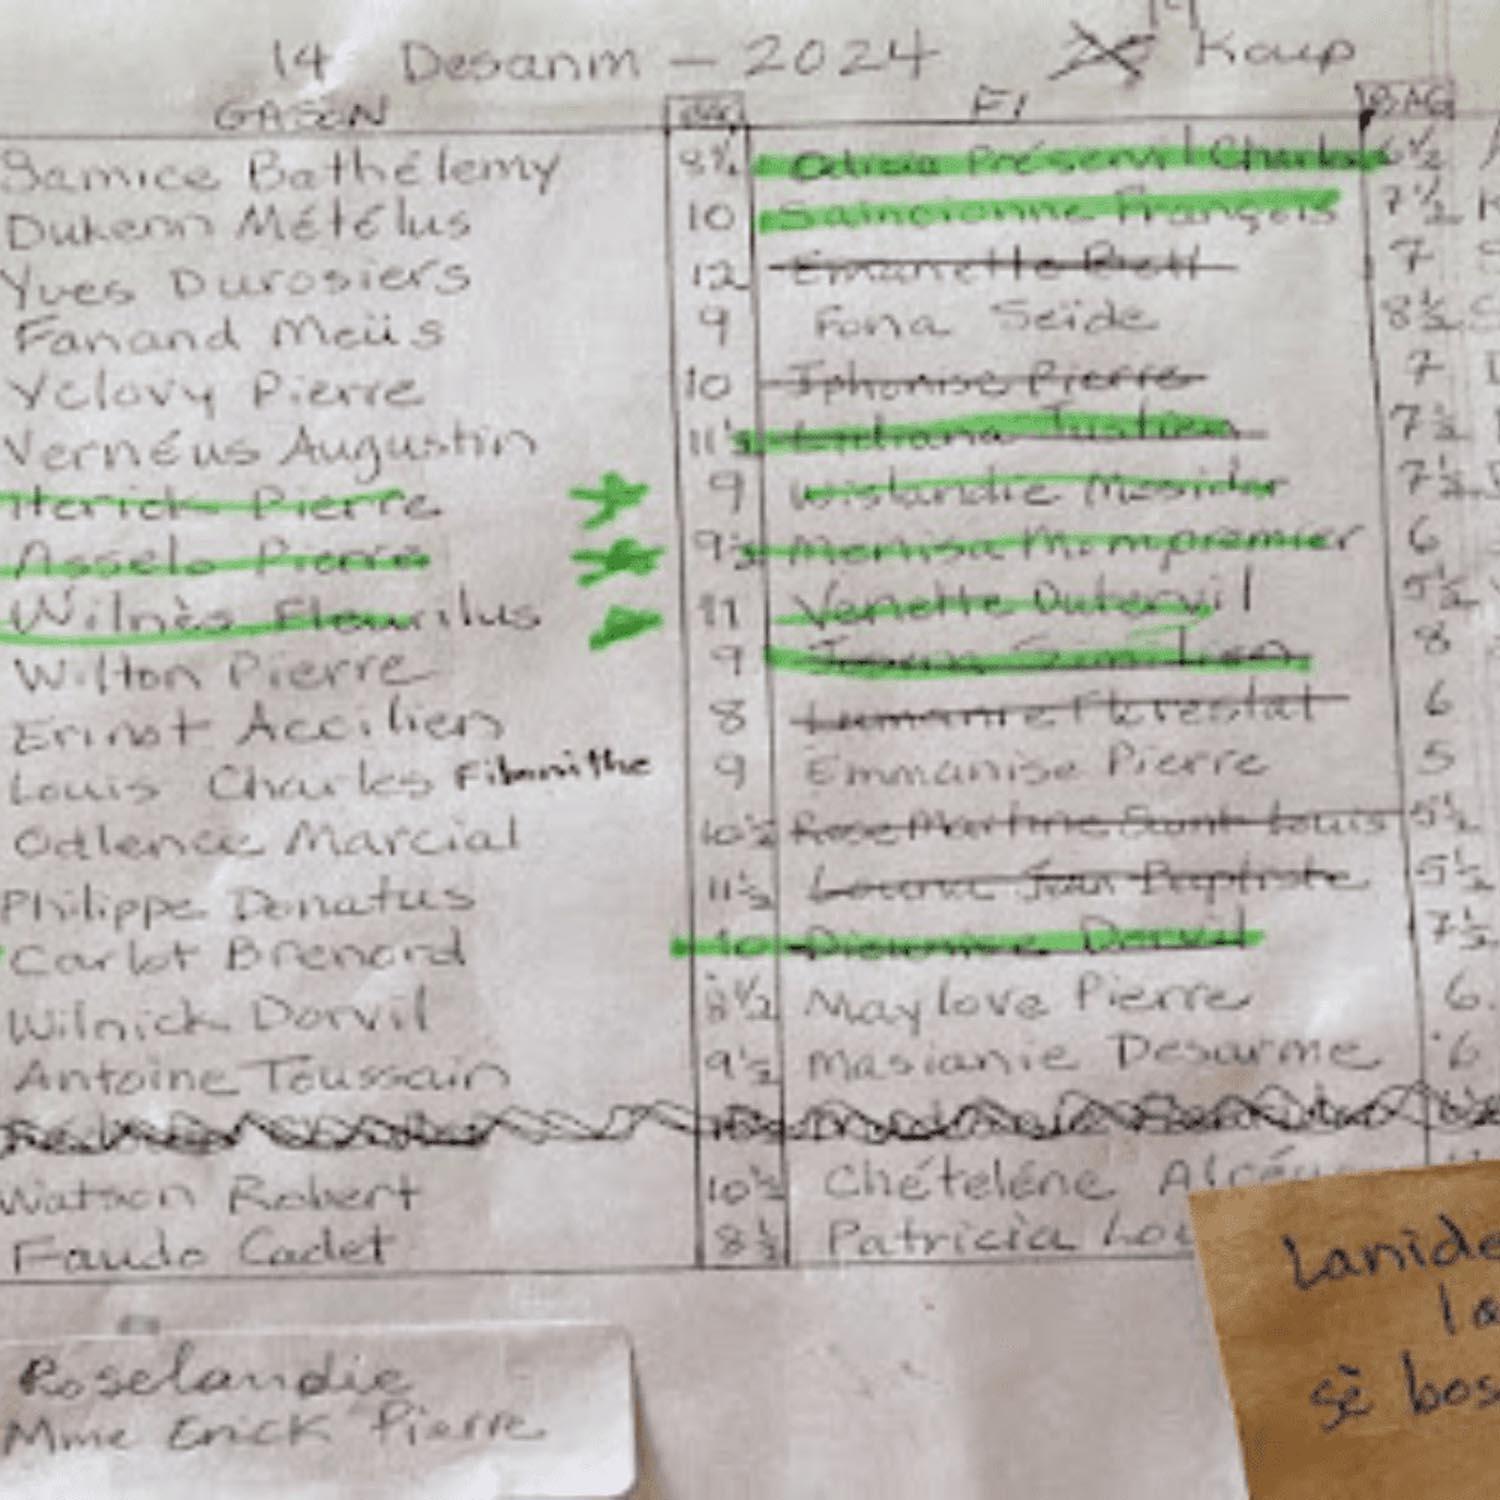 14 Desanm - 2024 19 Koup
GASON BAG FI BAG
Samice Bathélemy 8½ Préservil Charles 6½
Dukenn Métélus 10 Saincionne François 7½
Yves Durosiers 12 Emanette 7
Fanand Meüs 9 Fona Seïde 8½
Yclovy Pierre 10 Iphonise Pierre 7
Vernéus Augustin 11½ 7½
Herick Pierre 9 Wislandie 7½
Asselo Pierre 9½ Menisa Mompremier 6
Wilnès Fleurilus 11 Venette Dutervil 5½
Wilton Pierre 9 8
Erinot Accilien 8 Lumanie Florestal 6
Louis Charles Filmnithe 9 Emmanise Pierre 5
Odlence Marcial 10½ Rose Martine Saint Louis 5½
Philippe Donatus 11½ Jean Baptiste 5½
Carlot Brenord 10 Dieunine Dorvil 7½
Wilnick Dorvil 8½ Maylove Pierre 6
Antoine Toussain 9½ Masianie Desarme 6
Watson Robert 10½ Chételéne
Faudo Cadet 8½ Patricia
Roselandie
Mme Erick Pierre
Lanide
la
sè bos